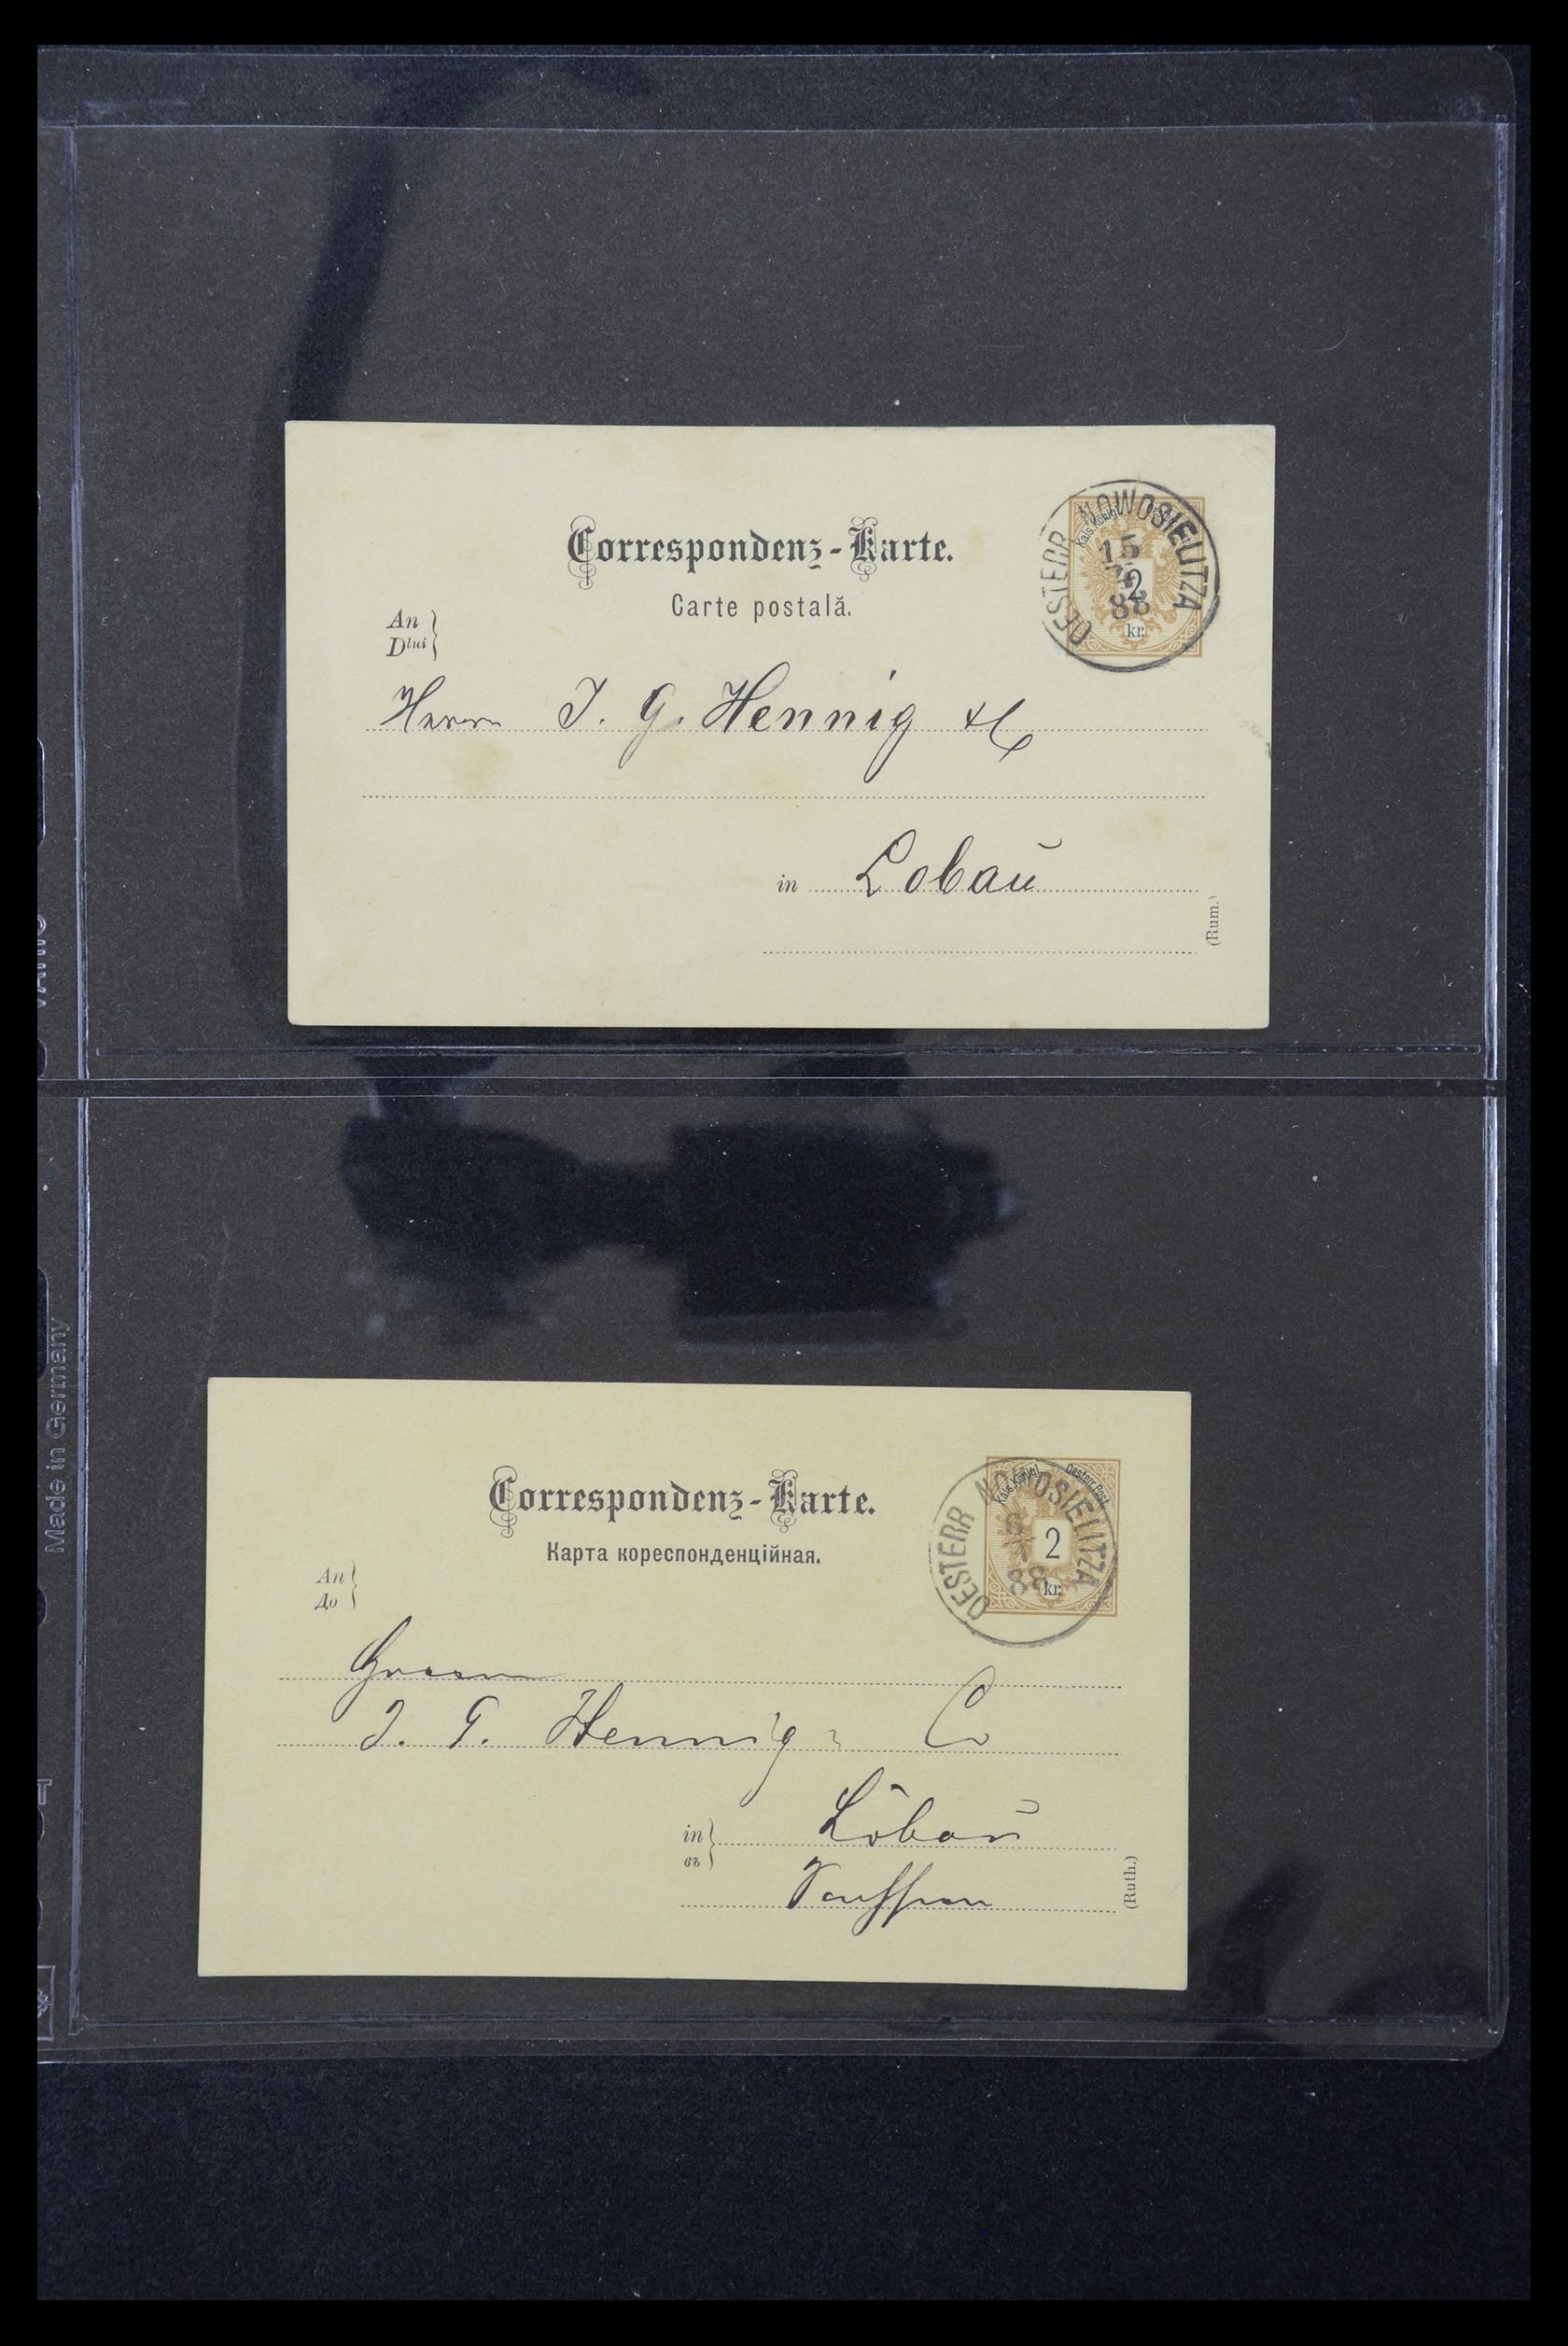 Correspondenz-Karte.
Carte postală.
OESTERR NOWOSIELITZA
15
88
Kais. Königl.
2
kr.
An
Dlui
Herrn J. G. Hennig & C
in Lobau
(Rum.)
Made in Germany
Correspondenz-Karte.
Карта кореспонденційная.
OESTERR NOWOSIELITZA
88
Kais. Königl. Oesterr. Post.
2
kr.
An
До
Herrn
J. G. Hennig & Co
in Löbau
въ
(Ruth.)